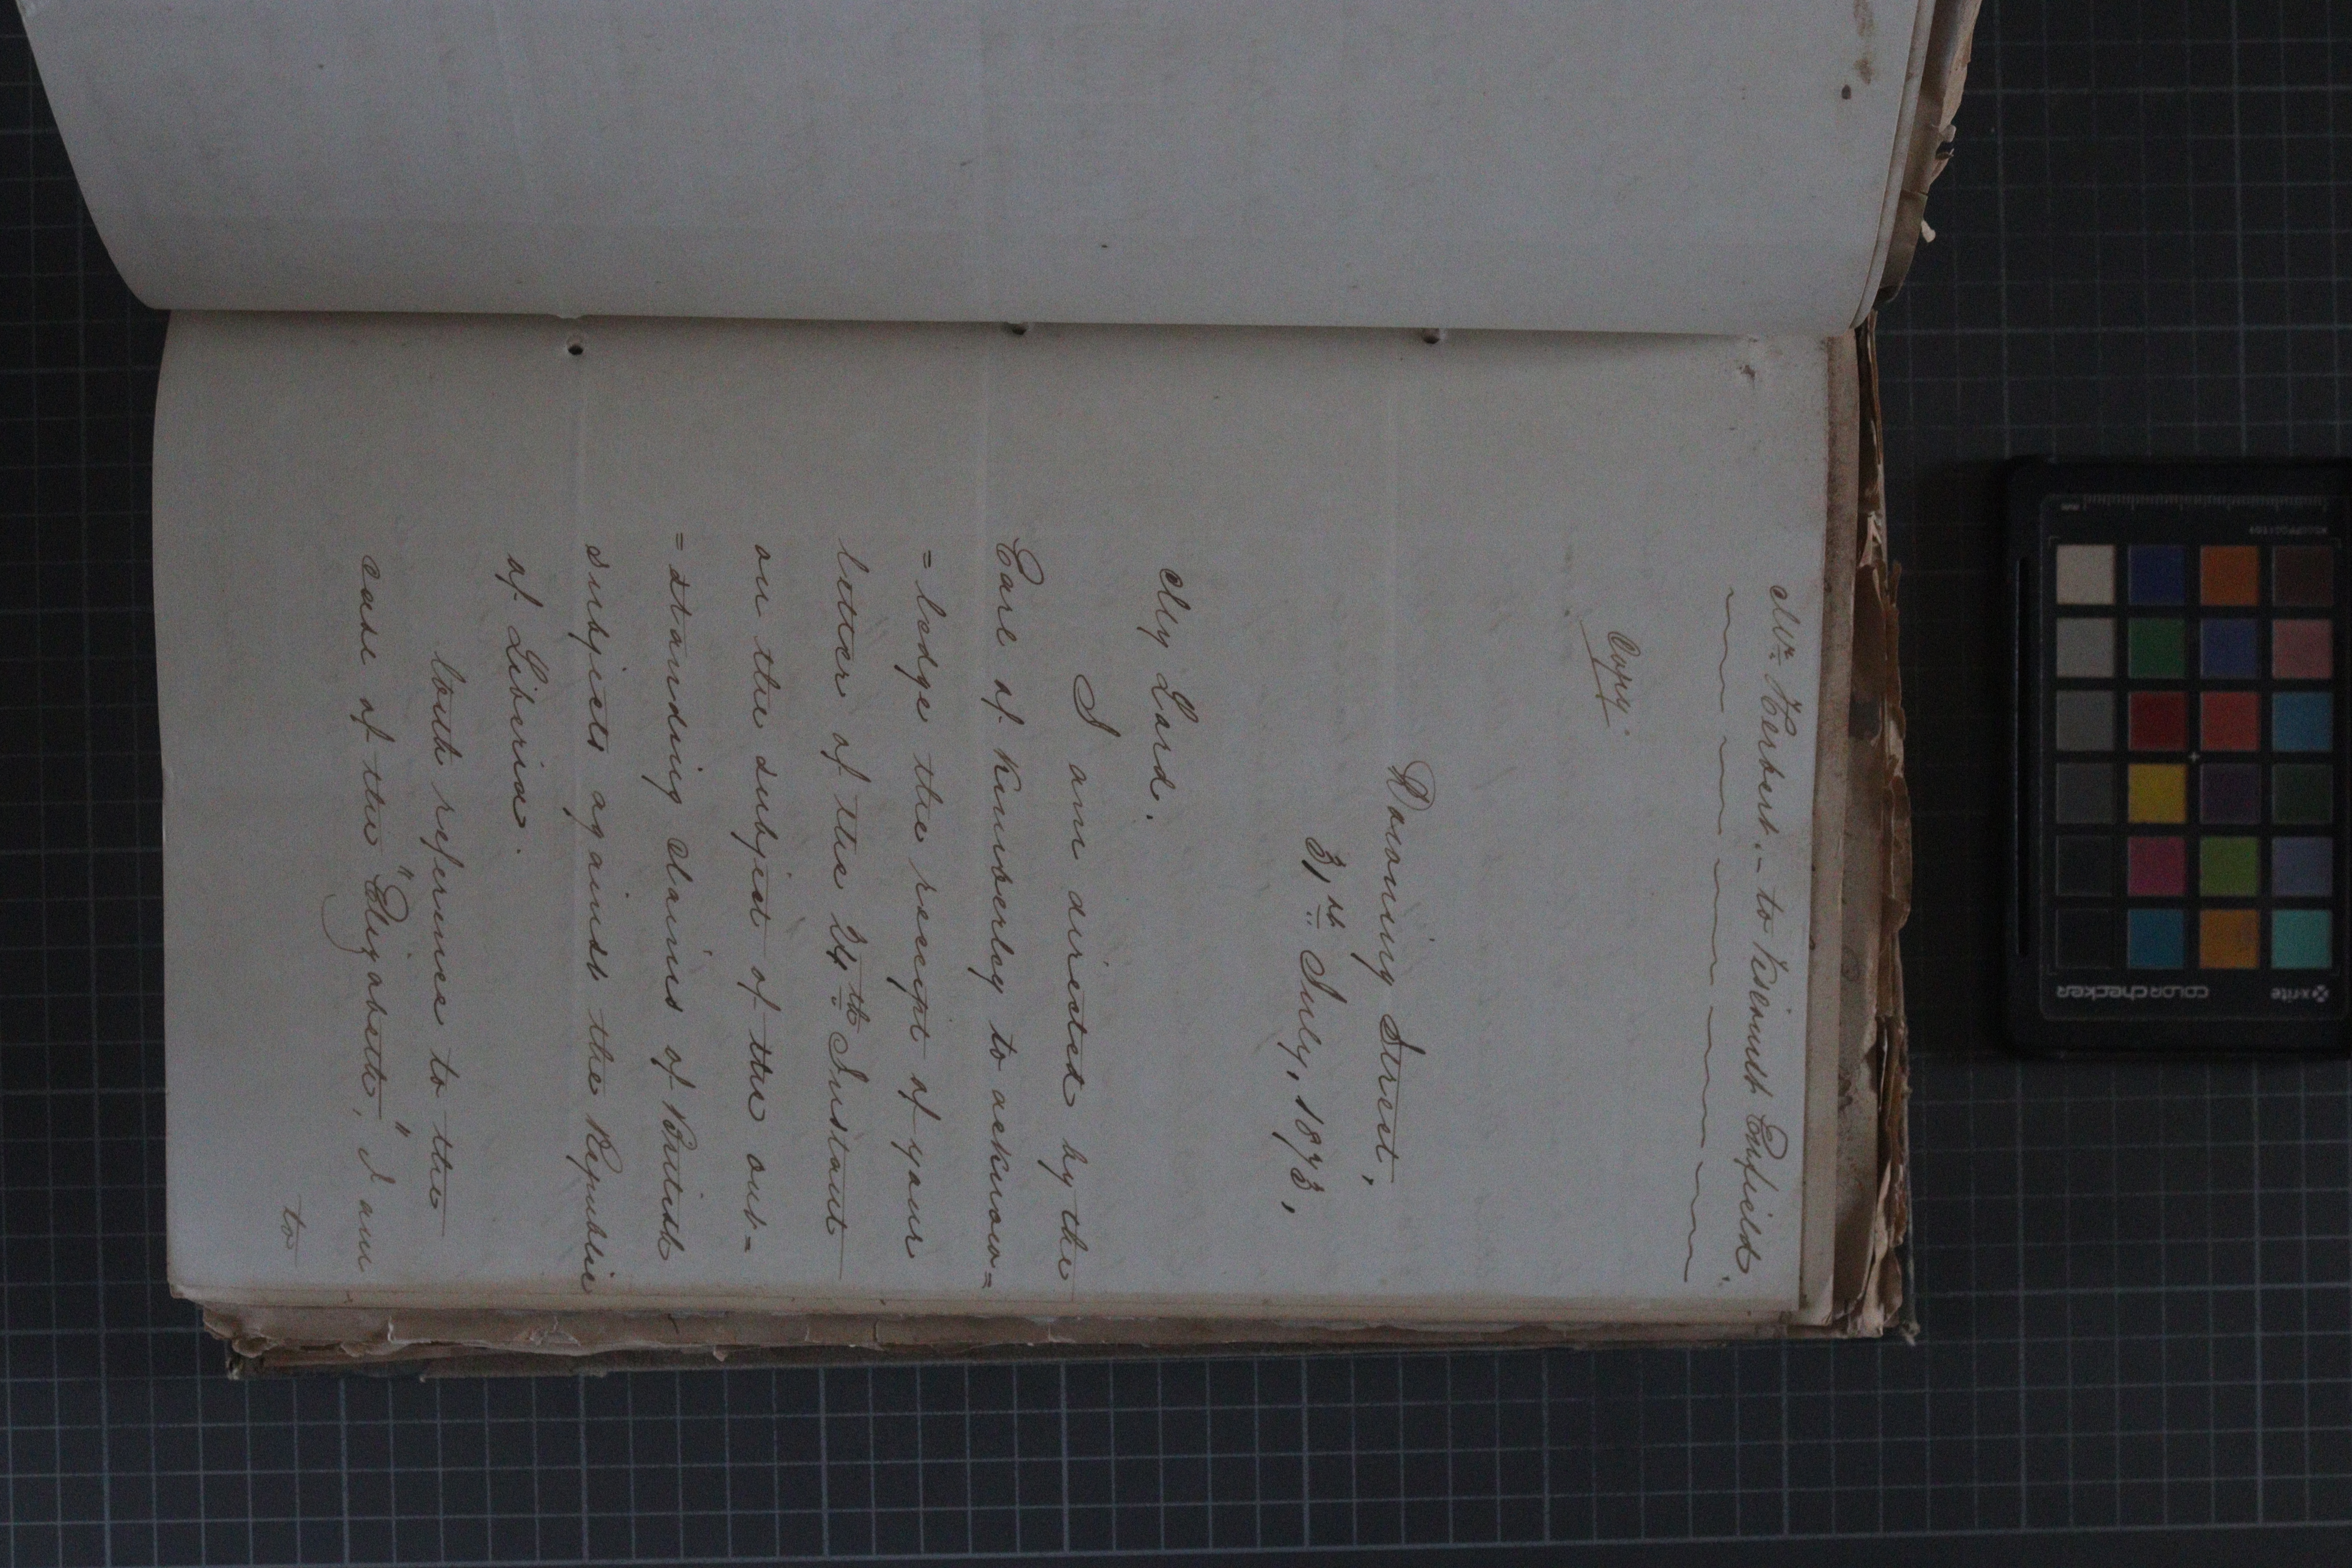 Mr. Herbert. - to Viscount Enfield.
Copy.
Downing Street,
31st July, 1873,
My Lord.
I am directed by the
Earl of Kimberley to acknow=
=ledge the receipt of your
letter of the 24th Instant
on the subject of the out=
=standing claims of British
subjects against the Republic
of Liberia.
With reference to the
case of the "Elizabeth," I am
to
x-rite
colorchecker